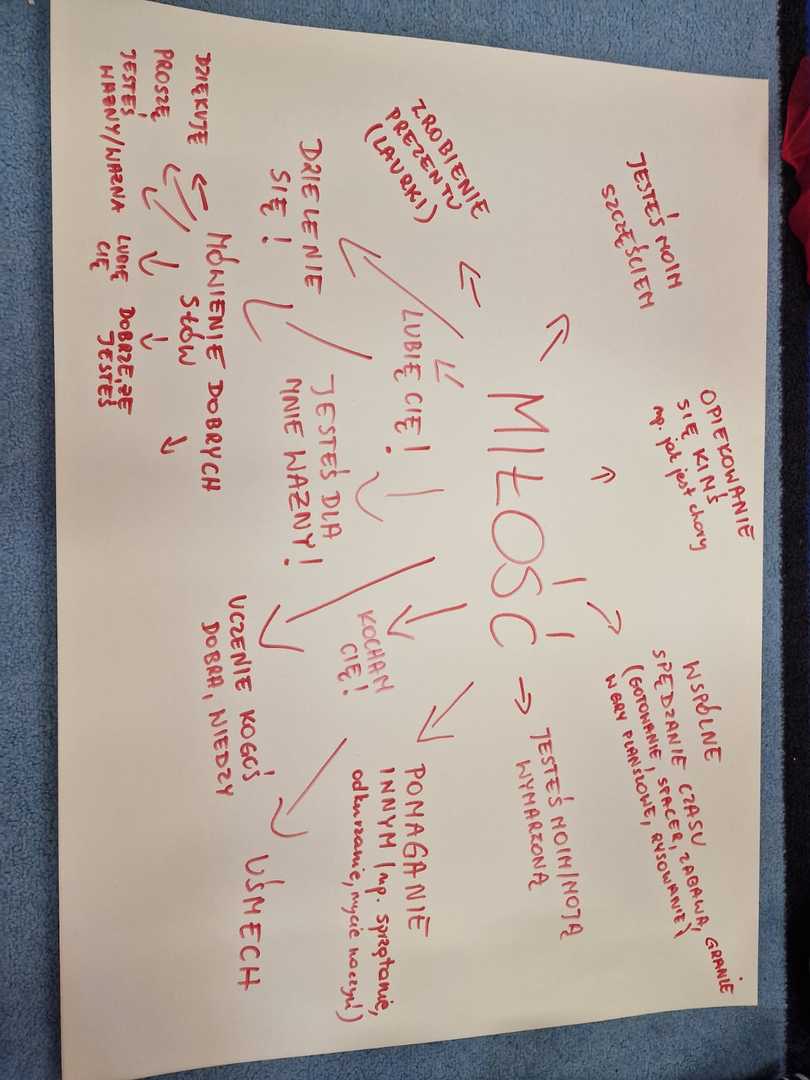 JESTEŚ MOIM
SZCZĘŚCIEM
OPIEKOWANIE
SIĘ KIMŚ
np. jak jest chory
WSPÓLNE
SPĘDZANIE CZASU
(GOTOWANIE, SPACER, ZABAWA, GRANIE
W GRY PLANSZOWE, RYSOWANIE)
ZROBIENIE
PREZENTU
(LAURKI)
MIŁOŚĆ
JESTEŚ MOIM/MOJĄ
WYMARZONĄ
LUBIĘ CIĘ!
DZIELENIE
SIĘ!
JESTEŚ DLA
MNIE WAŻNY!
KOCHAM
CIĘ!
POMAGANIE
INNYM (np. sprzątanie,
odkurzanie, mycie naczyń)
MÓWIENIE DOBRYCH
SŁÓW
UCZENIE KOGOŚ
DOBRA, WIEDZY
UŚMIECH
DZIĘKUJĘ
PROSZĘ
JESTEŚ
WAŻNY/WAŻNA
LUBIĘ
CIĘ
DOBRZE, ŻE
JESTEŚ